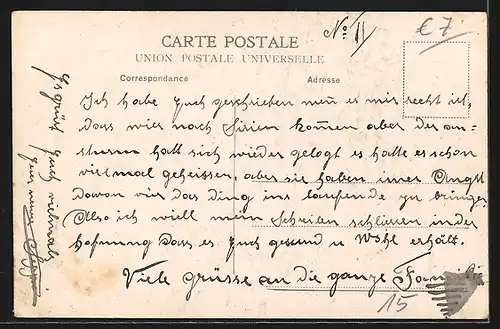 No 11
€ 7
CARTE POSTALE
UNION POSTALE UNIVERSELLE
Correspondance
Adresse
Ich habe Euch geschrieben men es mir recht ist,
dass wier nach Sirien komen aber der an-
sturm hatt sich wieder gelogt es hatte es schon
vielmal geheissen, aber sie haben imer Angst
davon vir das ding ins laufende zu bringen
Also ich wiell mein Schreiben schliesen in der
hofnung dass es Euch gesund u Wohl erhält.
Viele grüsse an die ganze Familie
15
Es grüst Euch vielmals
Euer